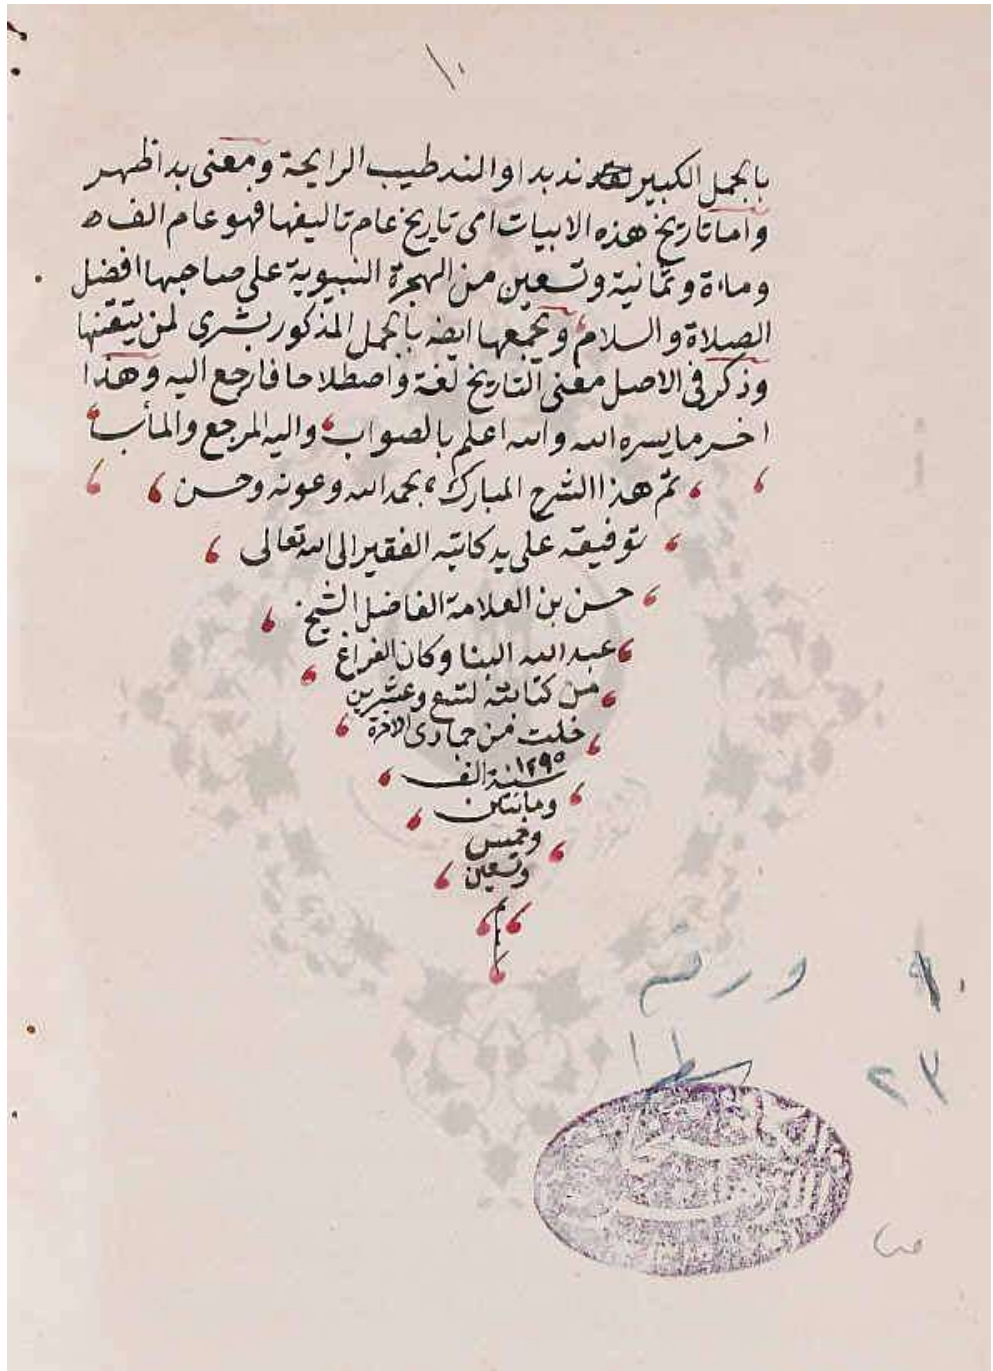 ١٠
بالجمل الكبير ند بدا والند طيب الرايحة ومعنى بدا ظهر
واما تاريخ هذه الابيات اى تاريخ عام تاليفها فهو عام الف
وماءة وثمانية وتسعين من الهجرة النبوية على صاحبها افضل
الصلاة والسلام ويجمعها ايضه بالجمل المذكور بشرى لمن يتقنها
وذكر فى الاصل معنى التاريخ لغة واصطلاحا فارجع اليه وهذا
اخر ما يسره الله والله اعلم بالصواب واليه المرجع والمأب
تم هذا الشرح المبارك بحمد الله وعونه وحسن
توفيقه على يد كاتبه الفقير الى الله تعالى
حسن بن العلامة الفاضل الشيخ
عبد الله البنا وكان الفراغ
من كتابته لتسع وعشرين
خلت من جمادى الاخرة
١٢٩٥ سنة الف
ومائتين
وخمس
وتسعين
م
ورقم ٩ ١٠
سطر ٢٣